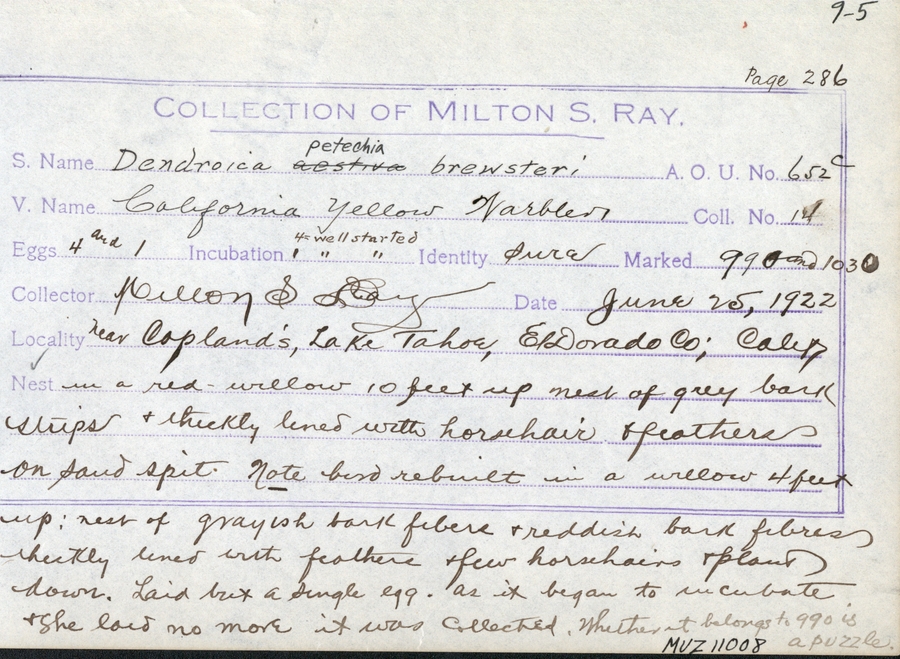 9-5
Page 286
COLLECTION OF MILTON S. RAY.
petechia
S. Name Dendroica aestiva brewsteri A. O. U. No. 652c
V. Name California Yellow Warbler Coll. No. 14
4= well started
Eggs 4 and 1 Incubation " " Identity sure Marked 990 and 1030
Collector Milton S Ray Date June 25, 1922
Locality near Copland's, Lake Tahoe, El Dorado Co; Calif
Nest in a red-willow 10 feet up nest of grey bark
strips + thickly lined with horsehair + feathers
on sand spit. Note bird rebuilt in a willow 4 feet
up; nest of grayish bark fibers + reddish bark fibres
thickly lined with feathers + few horsehairs + plant
down. Laid but a single egg. as it began to incubate
+ she laid no more it was collected. Whether it belongs to 990 is
a puzzle.
MVZ 11008